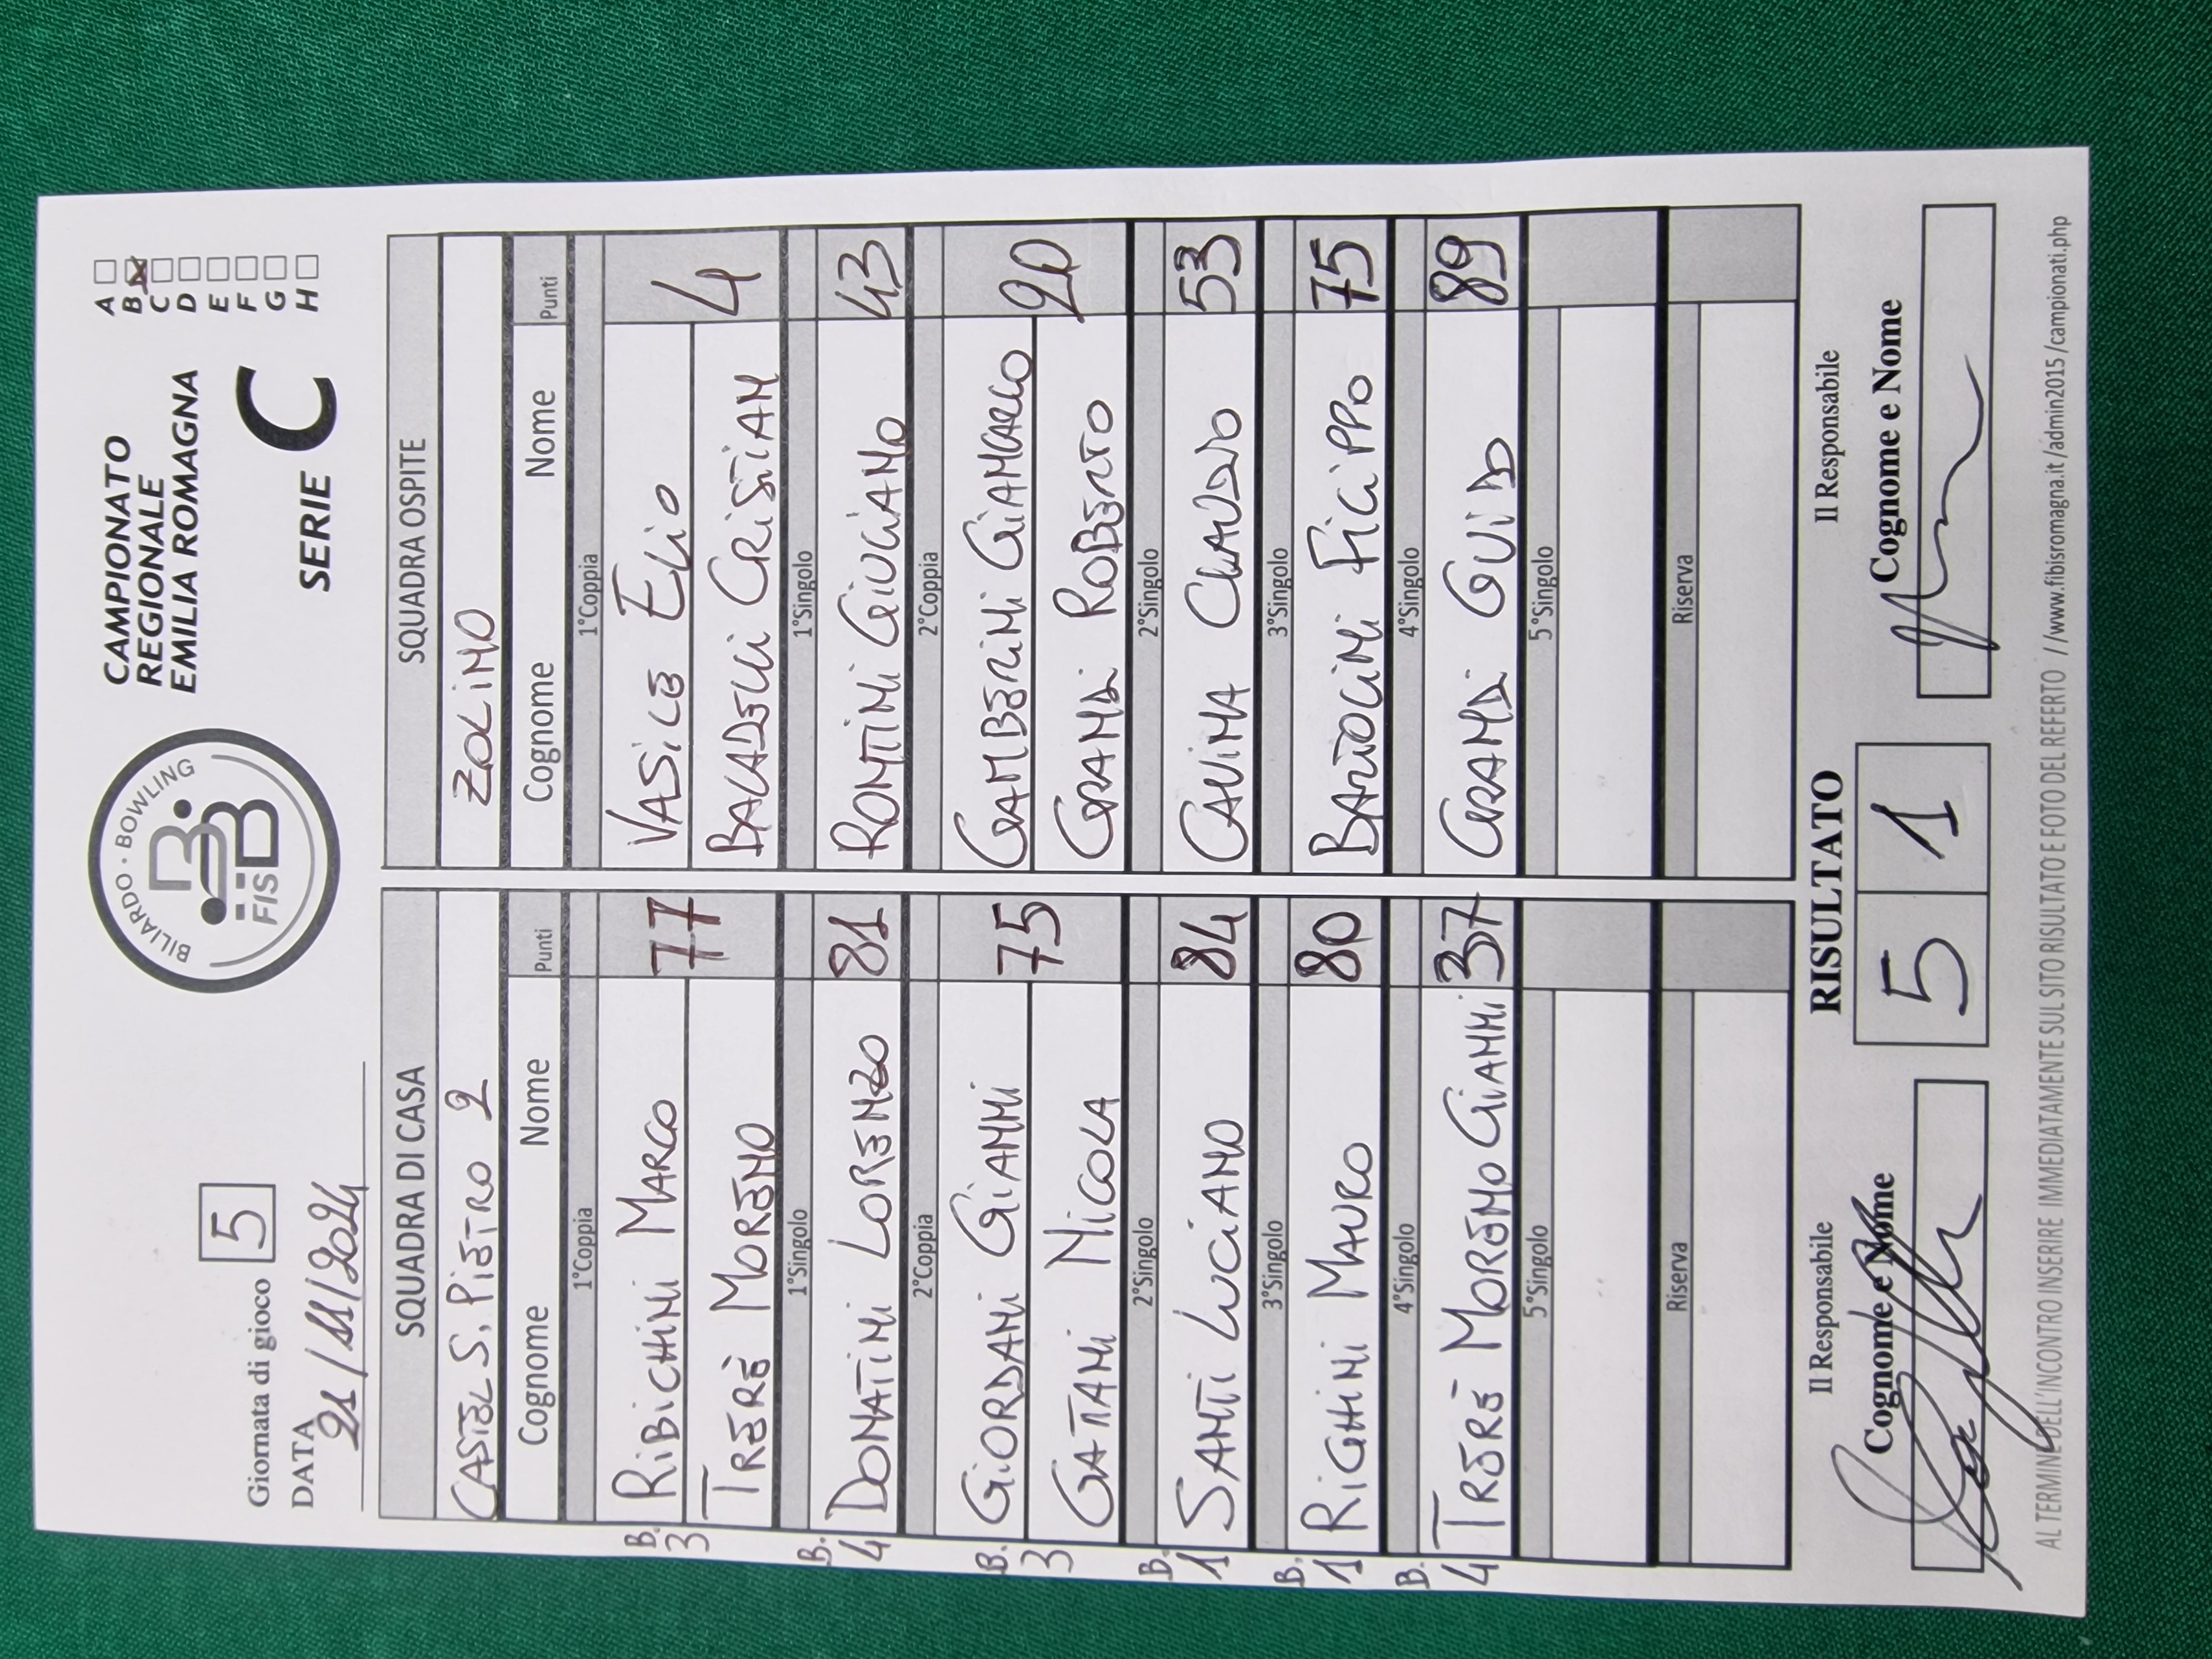 BILIARDO · BOWLING
FISBB
CAMPIONATO
REGIONALE
EMILIA ROMAGNA
SERIE C
A
B
C
D
E
F
G
H
Giornata di gioco 5
DATA 21/11/2024
SQUADRA DI CASA
CASTEL S. PIETRO 2
Cognome Nome Punti
1°Coppia
B. 3 RIBICHINI MARCO
TRERÈ MORENO 77
1°Singolo
B. 4 DONATINI LORENZO 81
2°Coppia
B. 3 GIORDANI GIANNI
GATANI NICOLA 75
2°Singolo
B. 1 SANTI LUCIANO 84
3°Singolo
B. 1 RIGHINI MAURO 80
4°Singolo
B. 4 TRERÈ MORENO GIANNI 37
5°Singolo
Riserva
SQUADRA OSPITE
ZOLINO
Cognome Nome Punti
1°Coppia
VASILE ELIO
BACADELLI CRISTIAN 4
1°Singolo
RONTINI GIULIANO 43
2°Coppia
GAMBERINI GIANCARLO
GRANDI ROBERTO 20
2°Singolo
CAVINA CLAUDIO 53
3°Singolo
BARTOLINI FILIPPO 75
4°Singolo
GRANDI GUIDO 89
5°Singolo
Riserva
Il Responsabile
Cognome e Nome
RISULTATO
5 1
Il Responsabile
Cognome e Nome
AL TERMINE DELL'INCONTRO INSERIRE IMMEDIATAMENTE SUL SITO RISULTATO E FOTO DEL REFERTO //www.fibisromagna.it/admin2015/campionati.php